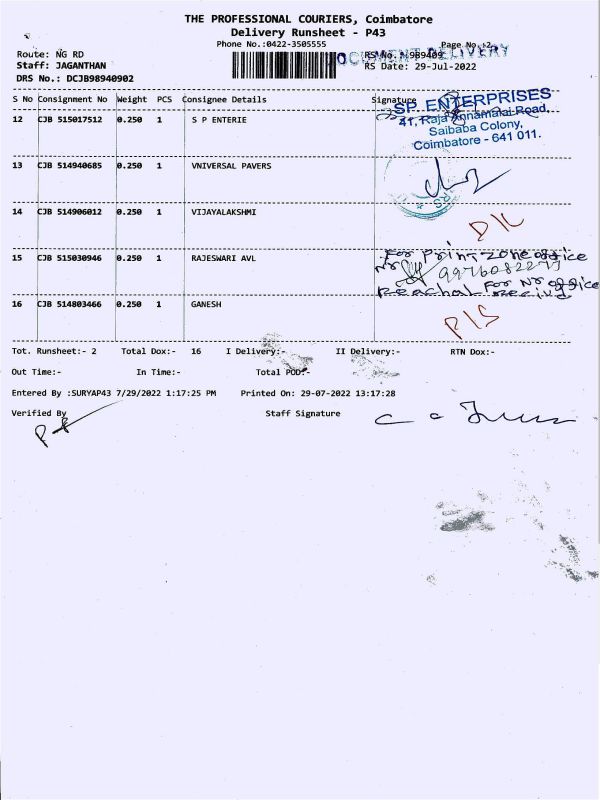 THE PROFESSIONAL COURIERS, Coimbatore
Delivery Runsheet - P43
Phone No.:0422-3505555
Page No.:2
DOCUMENT DELIVERY
Route: NG RD
RS No.: 989409
Staff: JAGANTHAN
RS Date: 29-Jul-2022
DRS No.: DCJB98940902
S No Consignment No Weight PCS Consignee Details Signature
12 CJB 515017512 0.250 1 S P ENTERIE
SP. ENTERPRISES
41, Raja Annamalai Road,
Saibaba Colony,
Coimbatore - 641 011.
13 CJB 514940685 0.250 1 VNIVERSAL PAVERS
14 CJB 514906012 0.250 1 VIJAYALAKSHMI
D/L
15 CJB 515030946 0.250 1 RAJESWARI AVL
For Print zone office
For Nr office
16 CJB 514803466 0.250 1 GANESH
Tot. Runsheet:- 2 Total Dox:- 16 I Delivery:- II Delivery:- RTN Dox:-
Out Time:- In Time:- Total POD:-
Entered By :SURYAP43 7/29/2022 1:17:25 PM Printed On: 29-07-2022 13:17:28
Verified By Staff Signature